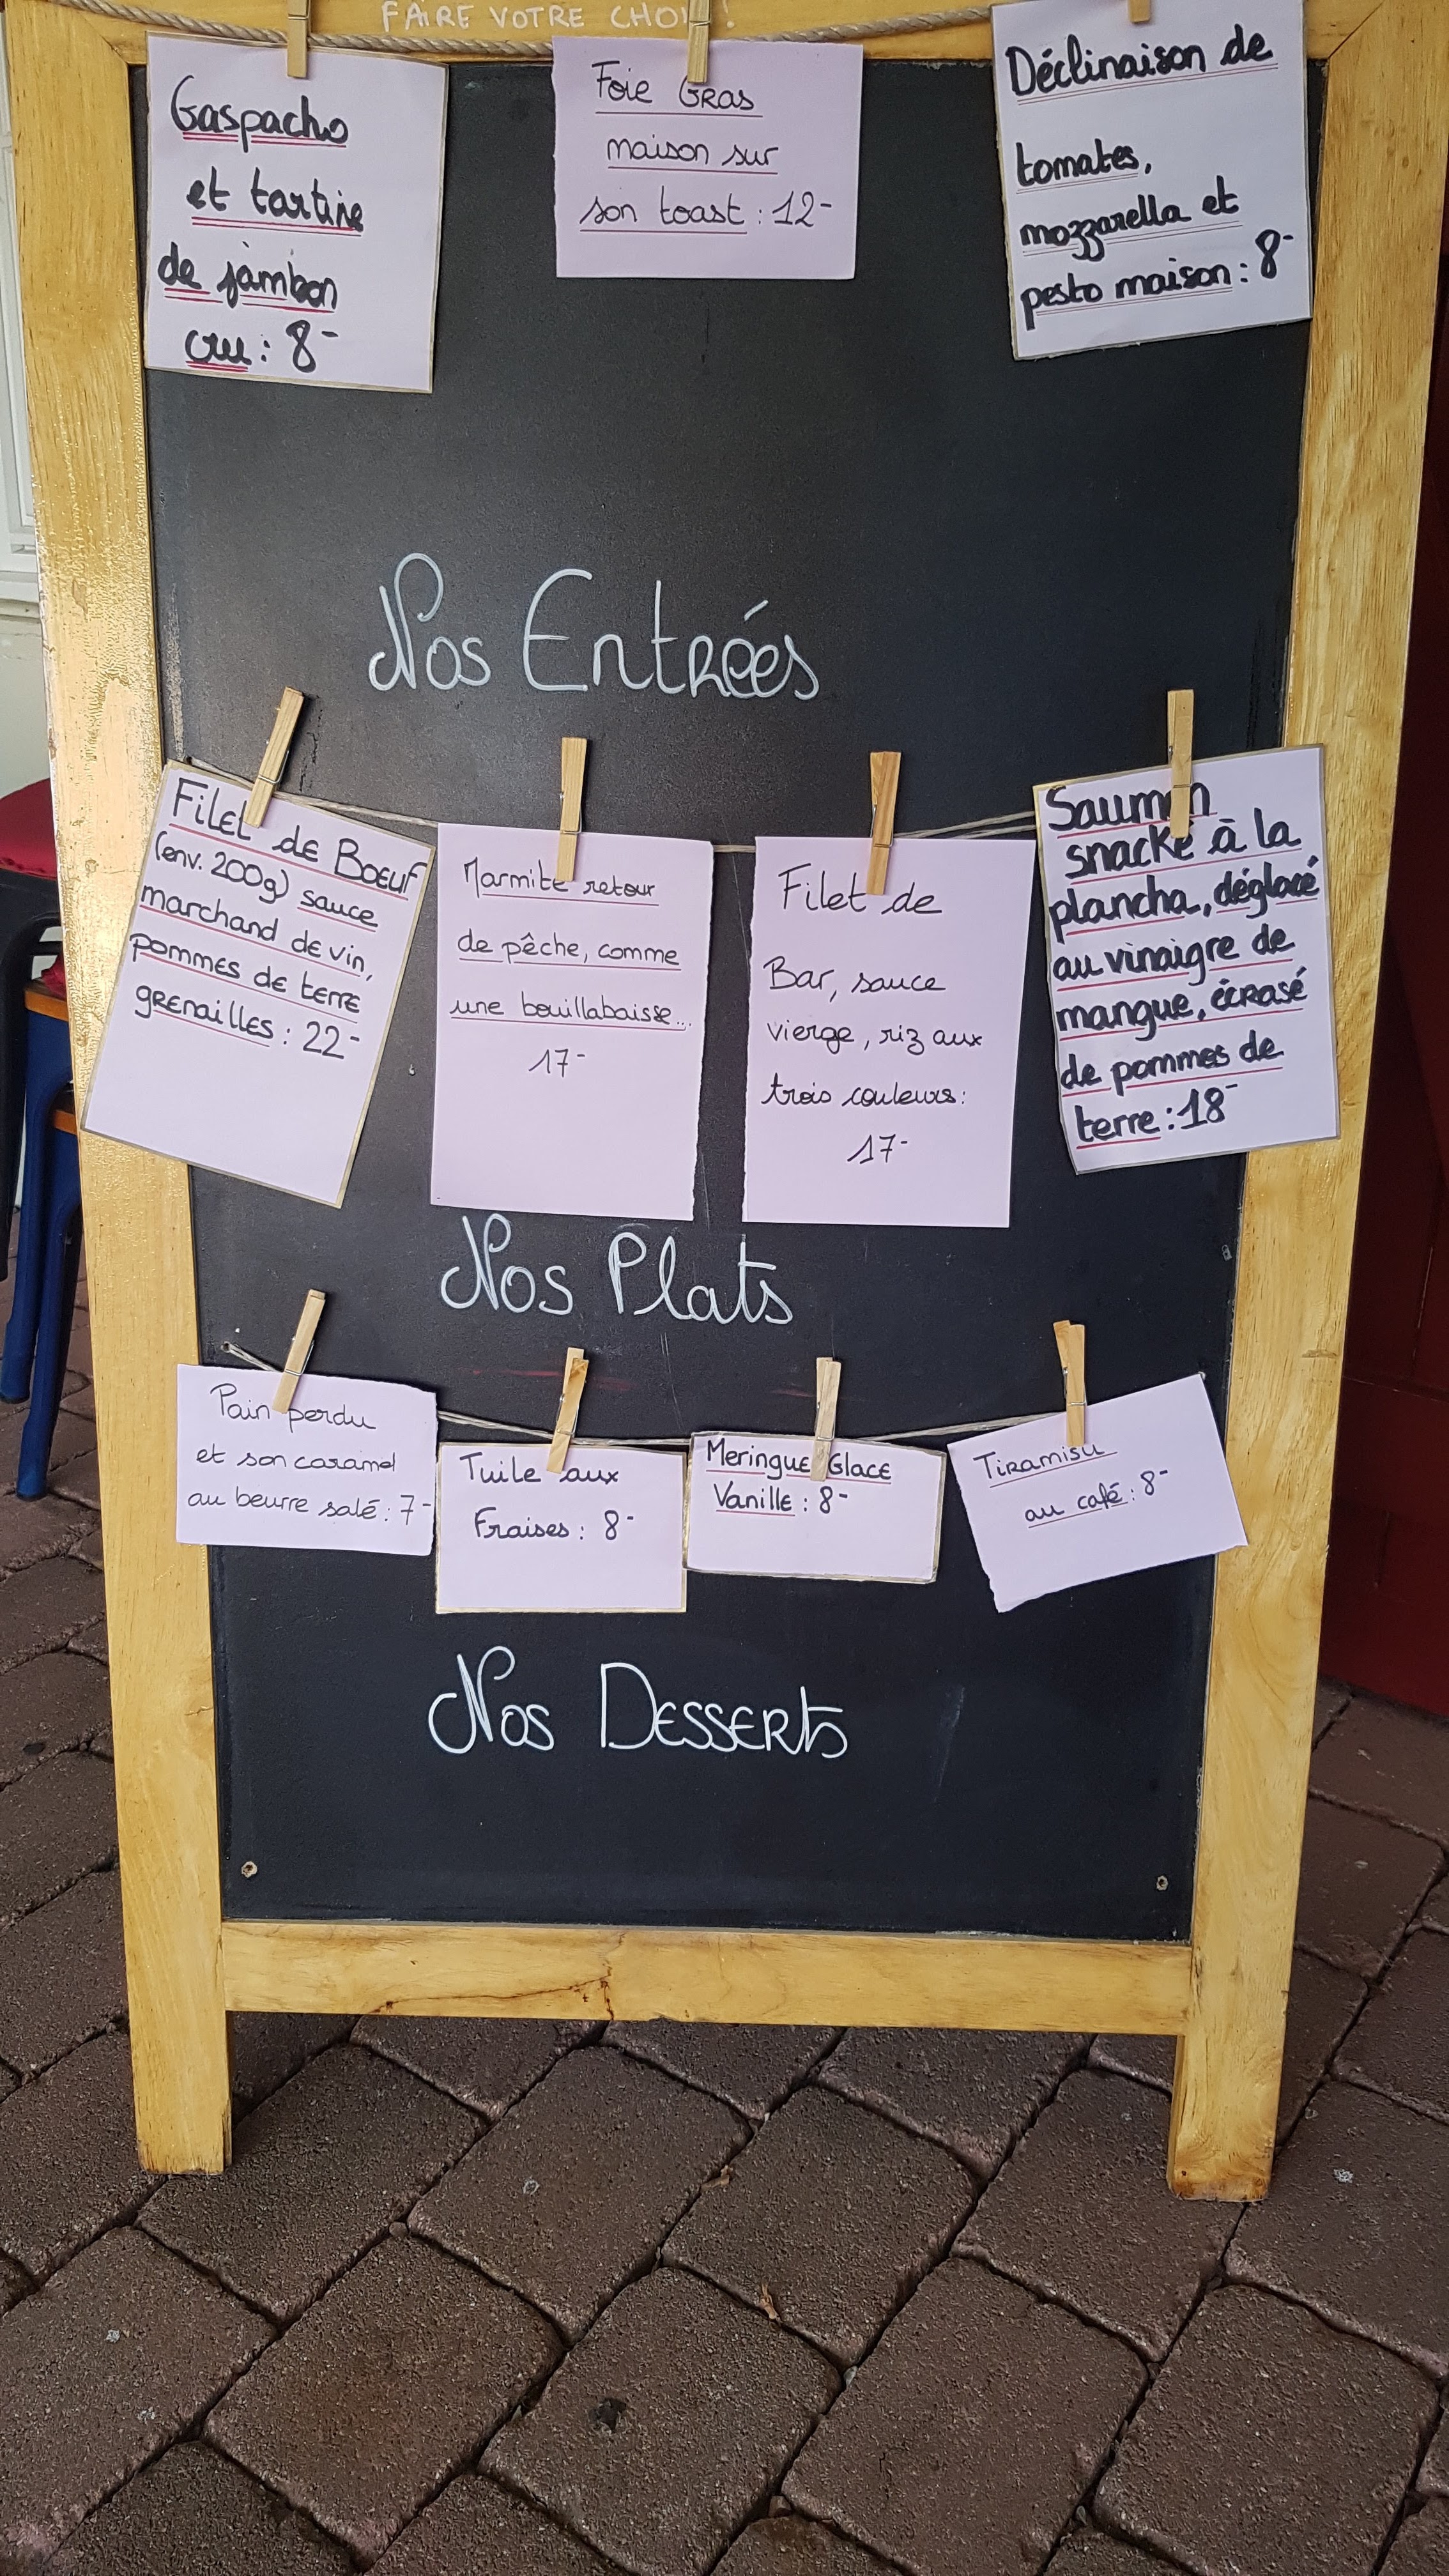 FAIRE VOTRE CHOIX !
Gaspacho
et tartine
de jambon
cru : 8-
Foie Gras
maison sur
son toast : 12-
Déclinaison de
tomates,
mozzarella et
pesto maison : 8-
Nos Entrées
Filet de Boeuf
(env. 200g) sauce
marchand de vin,
pommes de terre
grenailles : 22-
Marmite retour
de pêche, comme
une bouillabaisse...
17-
Filet de
Bar, sauce
vierge, riz aux
trois couleurs :
17-
Saumon
snacké à la
plancha, déglacé
au vinaigre de
mangue, écrasé
de pommes de
terre : 18-
Nos Plats
Pain perdu
et son caramel
au beurre salé : 7-
Tuile aux
Fraises : 8-
Meringue Glace
Vanille : 8-
Tiramisu
au café : 8-
Nos Desserts